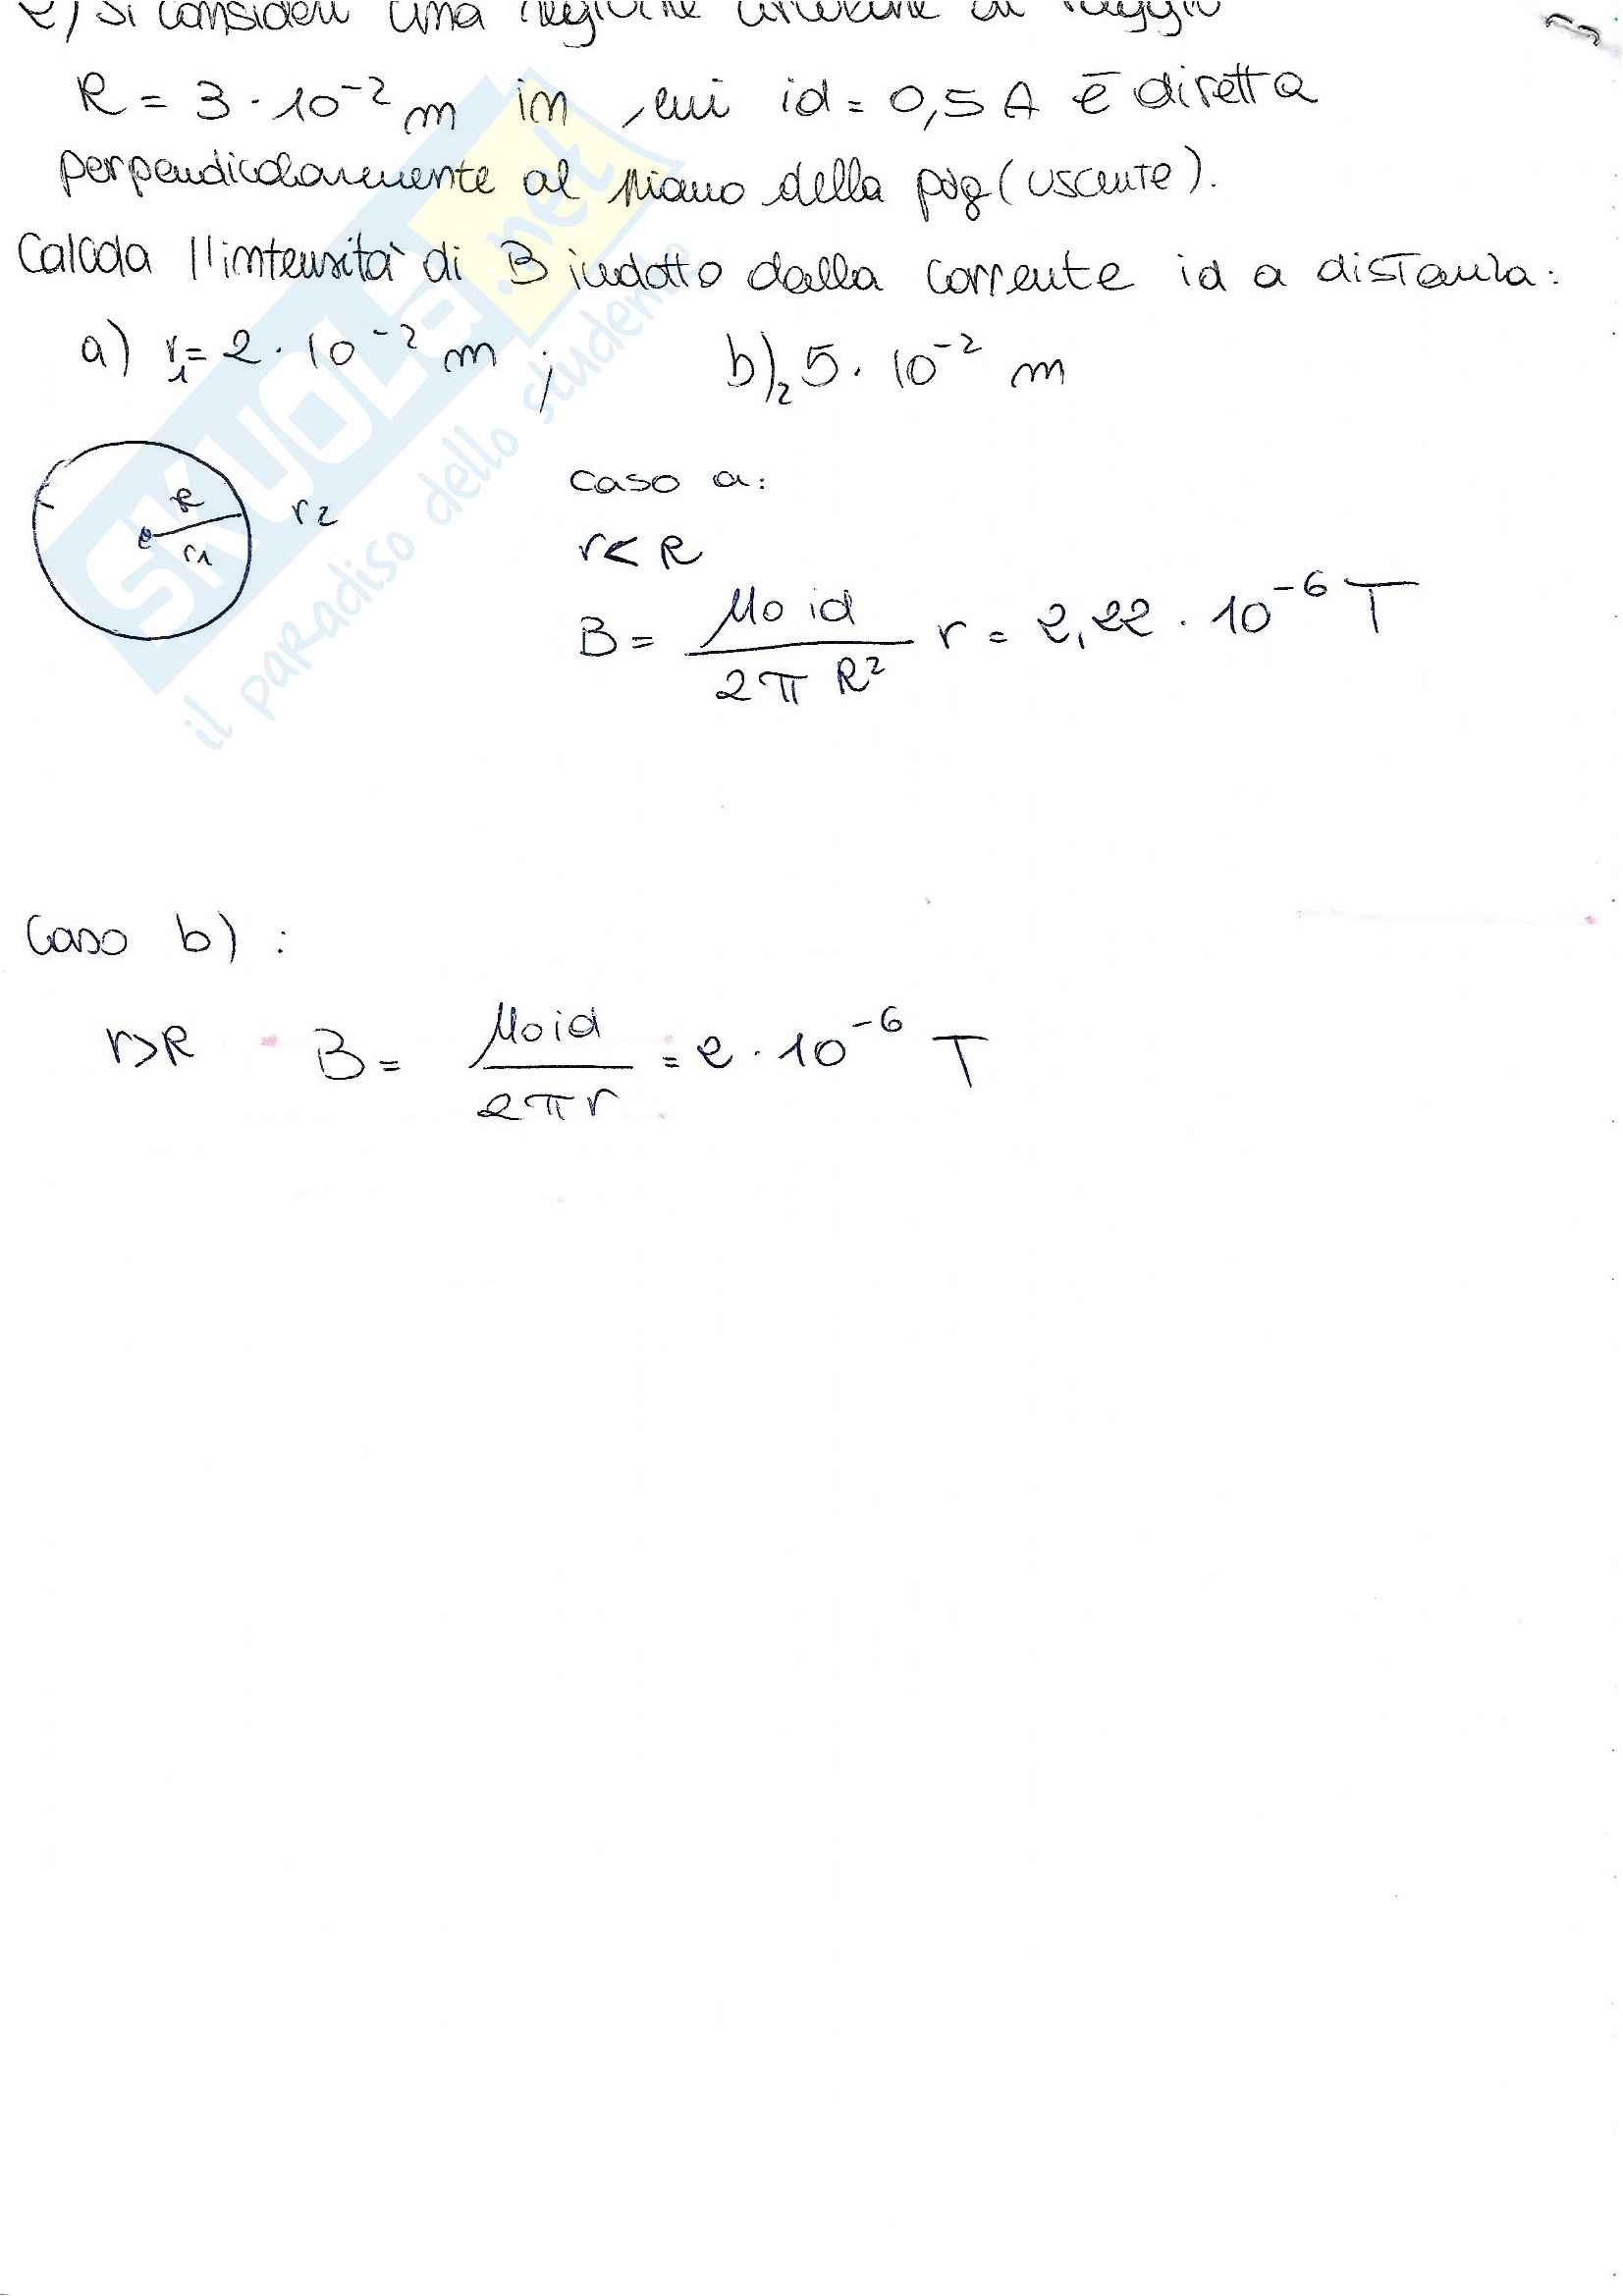 2) Si consideri una regione circolare di raggio
R = 3 · 10⁻² m in cui id = 0,5 A è diretta
perpendicolarmente al piano della pag (uscente).
Calcola l'intensità di B indotto dalla corrente id a distanza:
a) r₁ = 2 · 10⁻² m ; b)₂ 5 · 10⁻² m
R
r₁
r₂
caso a:
r < R
B = μ₀ id / 2π R² r = 2,22 · 10⁻⁶ T
Caso b) :
r > R B = μ₀ id / 2πr = 2 · 10⁻⁶ T
SKUOLA.net
il paradiso dello studente